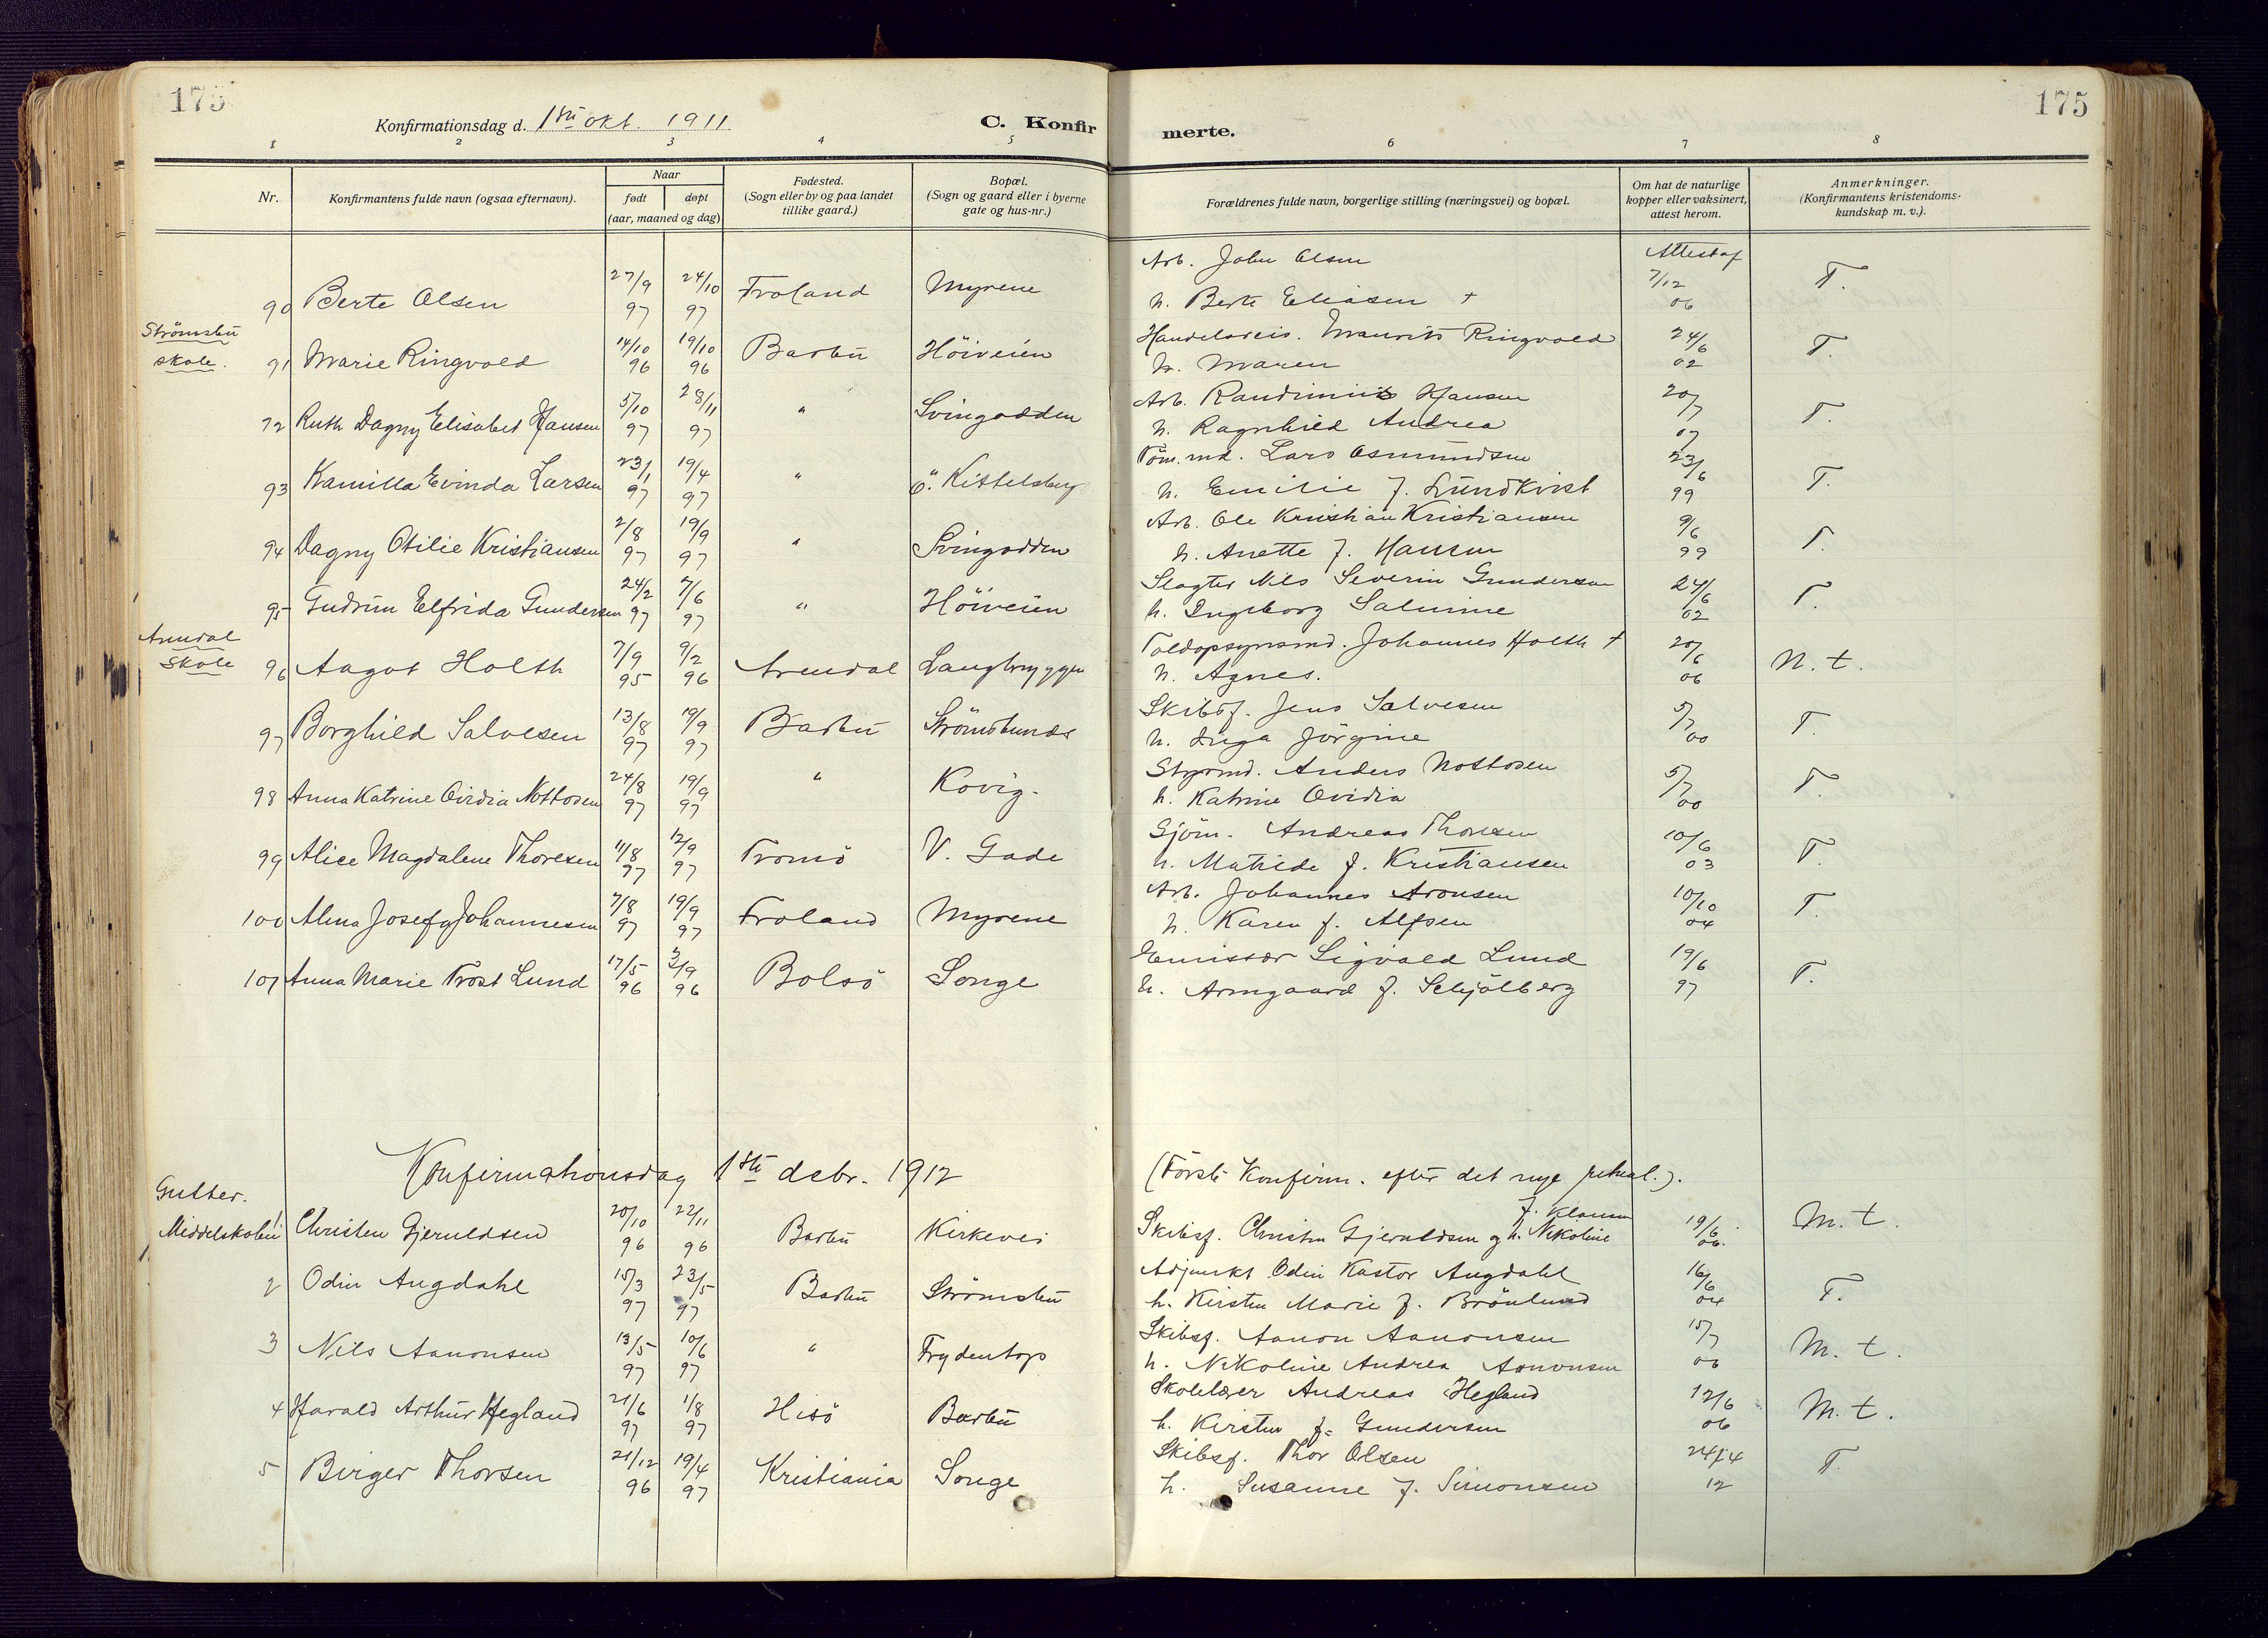 175
175
Konfirmationsdag d. 1ste okt. 1911
C. Konfir
merte.
1 2 3 4 5 6 7 8
Nr.
Konfirmantens fulde navn (ogsaa efternavn).
Naar
født døpt
(aar, maaned og dag)
Fødested.
(Sogn eller by og paa landet
tillike gaard.)
Bopæl.
(Sogn og gaard eller i byerne
gate og hus-nr.)
Forældrenes fulde navn, borgerlige stilling (næringsvei) og bopæl.
Om hat de naturlige
kopper eller vaksinert,
attest herom.
Anmerkninger.
(Konfirmantens kristendoms-
kundskap m. v.).
90 Berte Olsen 27/9 97 24/10 97 Froland Myrene
Arb. John Olsen
h. Berte Eliasen +
Attest af 7/12 06 T.
Strömsbu
skole.
91 Marie Ringvold 14/10 96 19/10 96 Barbu Höiveien
Handelsreis. Maurits Ringvold
h. Maren
24/6 02 T.
92 Ruth Dagny Elisabet Hansen 5/10 97 28/11 97 " Svingodden
Arb. Randinius Hansen
h. Ragnhild Andrea
20/7 07 T.
93 Kamilla Evinda Larsen 23/1 97 19/4 97 " Ö. Kittelsbuy
Töm.md. Lars Osmundsen
h. Emilie f. Lundkvist
23/6 99 T.
94 Dagny Otilie Kristiansen 2/8 97 19/9 97 " Svingodden
Arb. Ole Kristian Kristiansen
h. Anette f. Hansen
9/6 99 T.
95 Gudrun Elfrida Gundersen 24/2 97 7/6 97 " Höiveien
Slagter Nils Severin Gundersen
h. Ingeborg Salmine
24/6 02 T.
Arendal
skole
96 Aagot Holth 7/9 95 9/2 96 Arendal Langbryggen
Toldopsynsmd. Johannes Holth +
h. Agnes.
20/6 06 N. t.
97 Borghild Salvesen 13/8 97 19/9 97 Barbu Strömsbunds
Skibsf. Jens Salvesen
h. Inga Jörgine
5/7 00 T.
98 Anna Katrine Ovidia Nottosen 24/8 97 19/9 97 " Kovig.
Styrmd. Anders Nottosen
h. Katrine Ovidia
5/7 00 T.
99 Alice Magdalene Thoresen 11/8 97 12/9 97 Tromö V. Gade
Sjöm. Andreas Thoresen
h. Matilde f. Kristiansen
10/6 03 T.
100 Alma Josefa Johannesen 7/8 97 19/9 97 Froland Myrene
Arb. Johannes Aronsen
h. Karen f. Alfsen
10/10 04 T.
101 Anna Marie Trost Lund 17/5 96 3/9 96 Bolsö Songe
Emissær Sigvald Lund
h. Armgaard f. Schjölberg
19/6 97 T.
Konfirmationsdag 1ste debr. 1912 (Förste Konfirm. efter det nye ritual.).
Gutter.
Middelskolen
1 Christen Gjeruldsen 20/10 96 22/11 96 Barbu Kirkevei
f. Klausen
Skibsf. Christen Gjeruldsen og h. Nikoline
19/6 06. M. t.
2 Odin Augdahl 15/3 97 23/5 97 Barbu Strömsbu
Adjunkt Odin Kastor Augdahl
h. Kirsten Marie f. Brönlund
16/6 04 T.
3 Nils Aanonsen 13/5 97 10/6 97 " Frydentop
Skibsf. Aanon Aanonsen
h. Nikoline Andrea Aanonsen
15/7 06 M. t.
4 Harald Arthur Hegland 21/6 97 1/8 97 Hisö Barbu
Skolelærer Andreas Hegland
h. Kirsten f. Gundersen
12/6 06 M. t.
5 Birger Thorsen 21/12 96 19/4 97 Kristiania Songe
Skibsf. Thor Olsen
h. Susanne f. Simonsen
24/4 12 T.